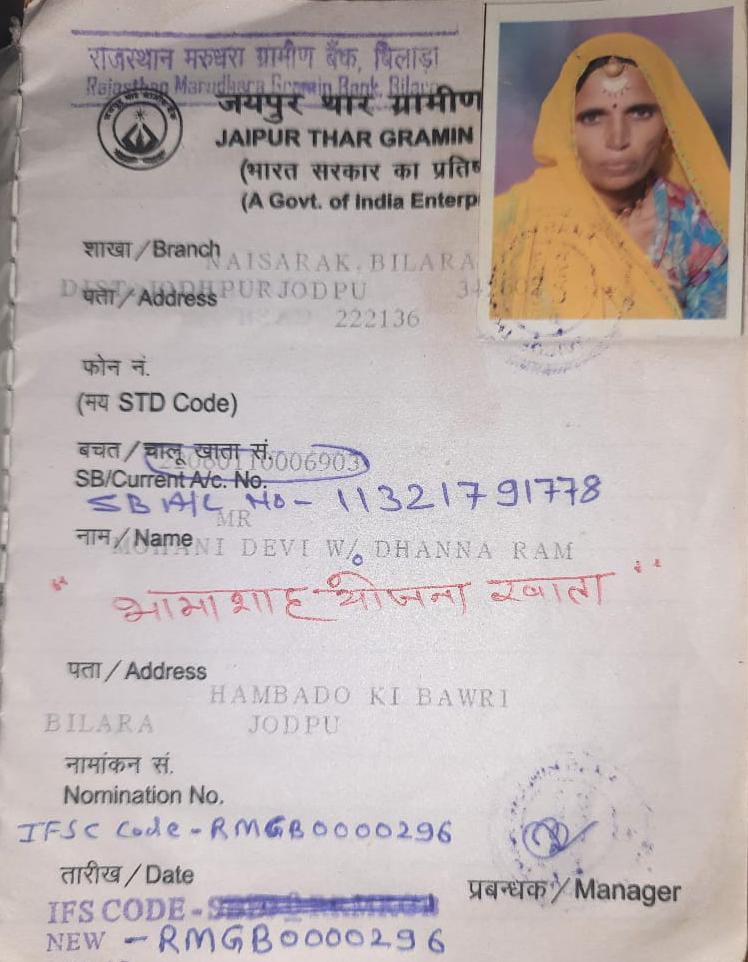 राजस्थान मरुधरा ग्रामीण बैंक, बिलाड़ा
Rajasthan Marudhara Gramin Bank, Bilara
जयपुर थार ग्रामीण
JAIPUR THAR GRAMIN
(भारत सरकार का प्रतिष
(A Govt. of India Enterp
शाखा / Branch
NAISARAK, BILARA
DIST JODHPUR JODPU
पता / Address
222136
फोन नं.
(मय STD Code)
बचत / चालू खाता सं.
SB/Current A/c. No.
SB A/C No - 11321791778
MR
नाम / Name
MOHANI DEVI W/o DHANNA RAM
"भामाशाह योजना खाता"
पता / Address
HAMBADO KI BAWRI
BILARA JODPU
नामांकन सं.
Nomination No.
IFSC Code - RMGB0000296
तारीख / Date
प्रबन्धक / Manager
IFS CODE -
NEW - RMGB0000296